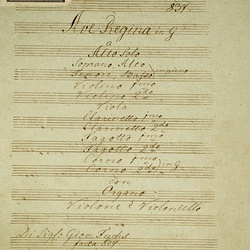 837.
Ave Regina in G
a
Alto Solo
Soprano, Alto
Tenore, Basso in pieno
Violino 1mo
Violino 2do
Viola
Clarinetto 1mo
Clarinetto 2do
Fagotto 1mo
Fagotto 2do
Corno 1mo
Corno 2do in G
Con
Organo
Violone e Violoncello
Di Sigl: Giov. Fuchs